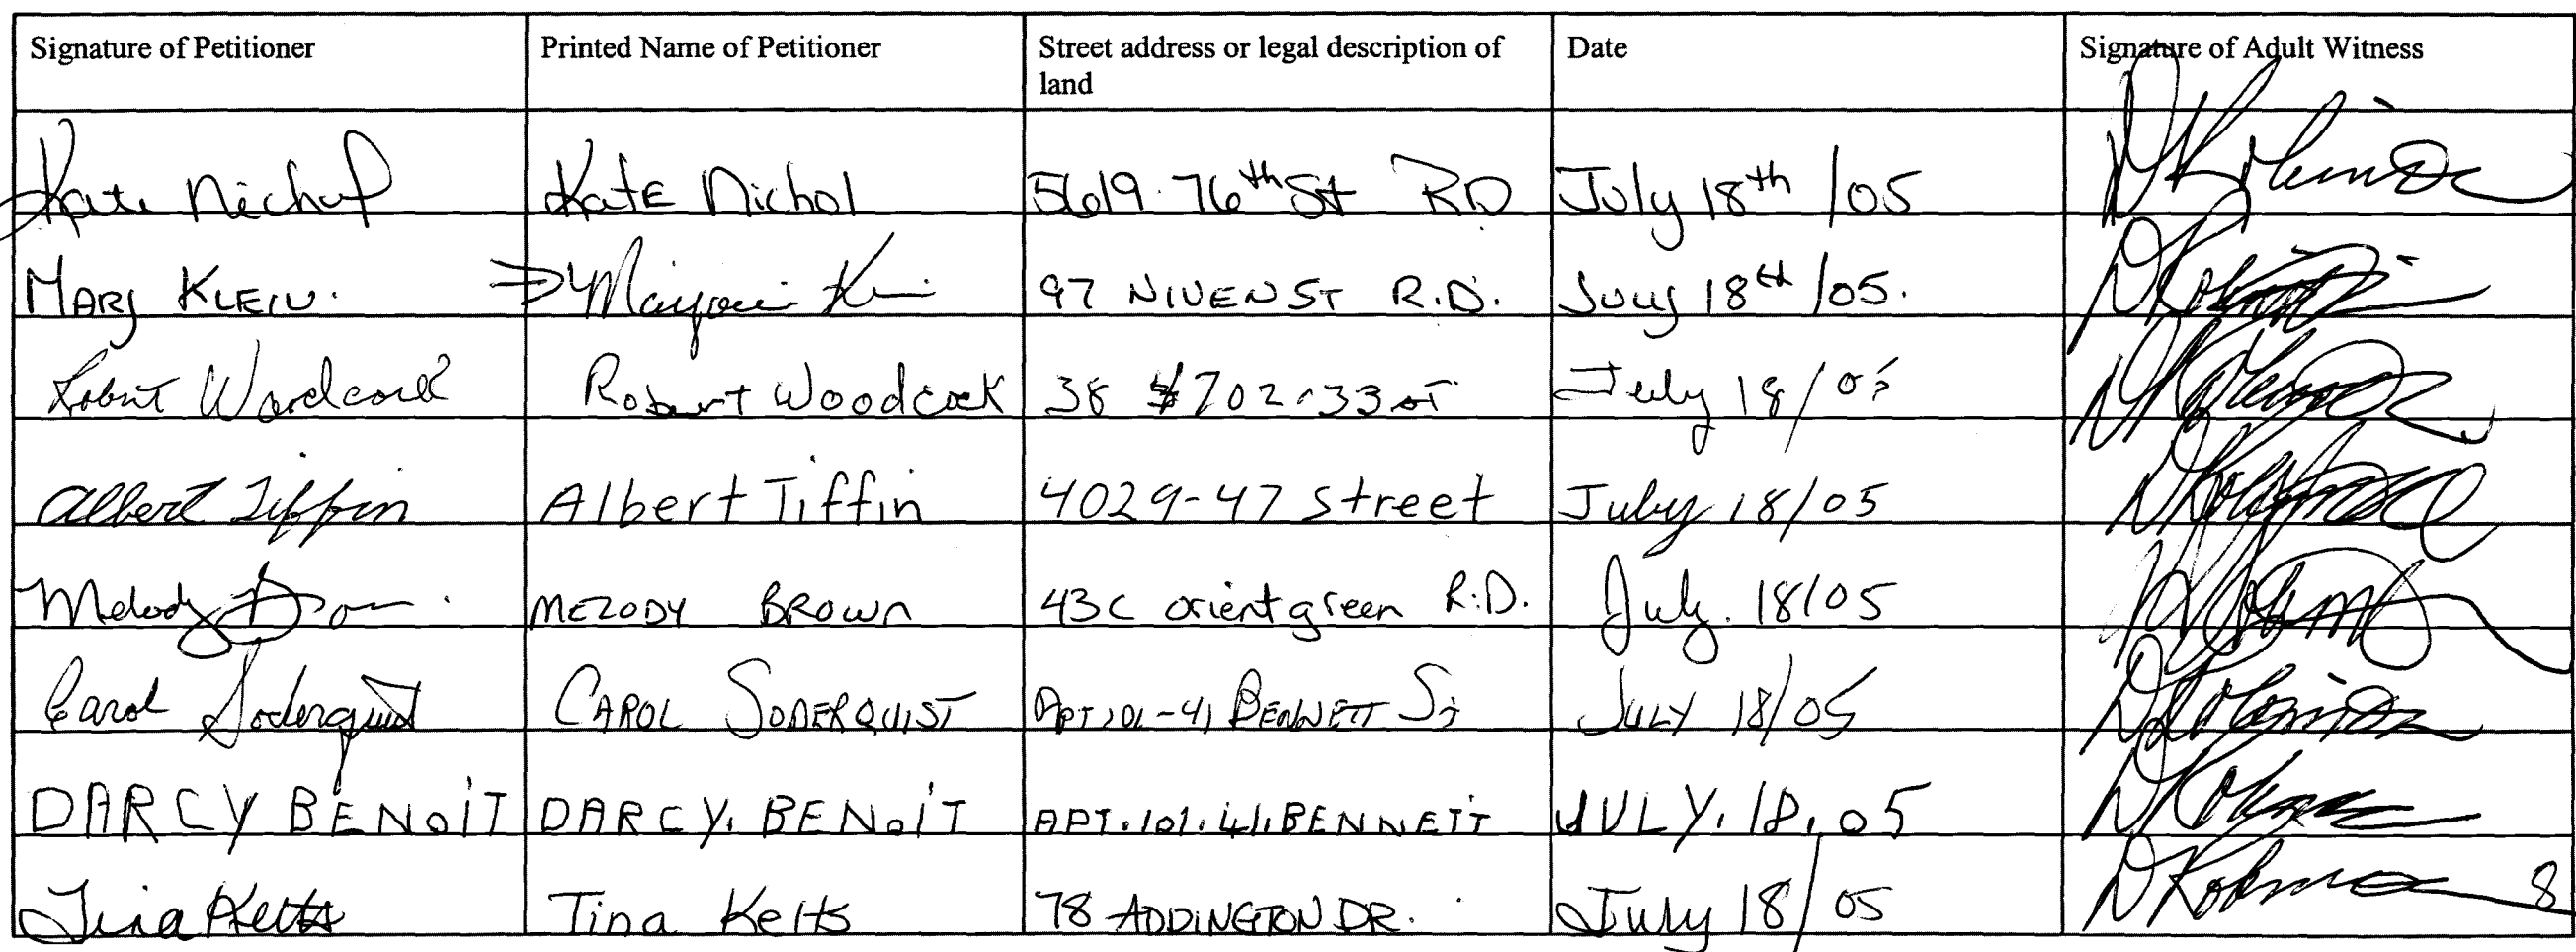 Signature of Petitioner Printed Name of Petitioner Street address or legal description of land Date Signature of Adult Witness
Kate Nichol KatE Nichol 5619 76th St RD July 18th /05
MARJ KLEIN. Marjorie 97 NIVEN ST R.D. July 18th /05.
Robert Woodcock Robert Woodcock 38 702 33 ST July 18/05
Albert Tiffin Albert Tiffin 4029-47 Street July 18/05
Melody MELODY BROWN 43C orient green R.D. July. 18/05
Carol Soderquist CAROL SODERQUIST APT 101-41 BENNETT St JULY 18/05
DARCY BENOIT DARCY. BENOIT APT. 101. 41. BENNETT JULY. 18. 05
Tina Ketts Tina Ketts 78 ADDINGTON DR. July 18/05 8